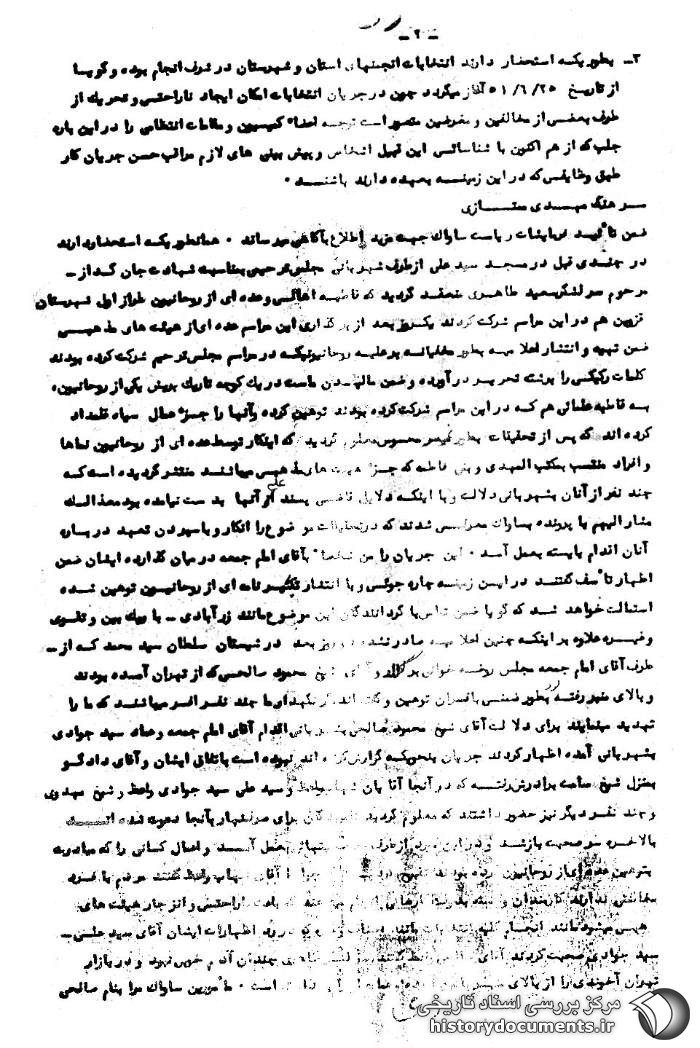 -۲-
۲ــ بطوریکه استحضار دارند انتخابات انجمنهای استان و شهرستان در شرف انجام بوده و گویا
از تاریخ ۵۱/۶/۲۵ آغاز میگردد چون در جریان انتخابات امکان ایجاد ناراحتی و تحریک از
طرف بعضی از مخالفین و مغرضین متصور است توجه اعضاء کمیسیون و مقامات انتظامی را در این باره
جلب که از هم اکنون با شناسائی این قبیل اشخاص و پیش بینی های لازم مراقب حسن جریان کار
طبق وظایفی که در این زمینه بعهده دارند باشند .
سرهنگ مهدی ممتازی
ضمن تأیید فرمایشات ریاست ساواک جهت مزید اطلاع بآگاهی میرساند . همانطوریکه استحضار دارند
در چندی قبل در مسجد سید علی از طرف شهربانی مجلس ترحیمی بمناسبت شهادت جان گداز ــ
مرحوم سرلشگر سعید طاهری منعقد گردید که قاطبه اهالی و عده ای از روحانیون طراز اول شهرستان
قزوین هم در این مراسم شرکت کردند یکروز بعد از برگذاری این مراسم عده ای از هیئت های مذهبی
ضمن تهیه و انتشار اعلامیه بطور مخفیانه بر علیه روحانیونیکه در مراسم مجلس ترحیم شرکت کرده بودند
کلمات رکیکی را برشته تحریر در آورده و ضمن مالیدن ماست در یک کوچه تاریک بریش یکی از روحانیون،
به قاطبه علمائی هم که در این مراسم شرکت کرده بودند توهین کرده و آنها را جزء عمال سیاه قلمداد
کرده اند که پس از تحقیقات بطور غیر محسوس معلوم گردید که اینکار توسط عده ای از روحانیون نماها
و افراد منتسب بمکتب المهدی و بنی فاطمه که جزء هیئت های مذهبی میباشند منتشر گردیده است که
چند نفر از آنان بشهربانی دلالت و با اینکه دلایل قاضی پسند علیه آنها بدست نیامده بود معذالک
مشارالیهم با پرونده بساواک معرفی شدند که در تحقیقات موضوع را انکار و با سپردن تعهد درباره
آنان اقدام بایسته بعمل آمد . این جریان را من شخصا" بآقای امام جمعه در میان گذارده ایشان ضمن
اظهار تأسف گفتند در این زمینه چاره جوئی و با انتشار تکثیر نامه ای از روحانیون توهین شده
استمالت خواهد شد که گویا ضمن تماس با گردانندگان این موضوع مانند زرآبادی ــ
و غیره علاوه بر اینکه چنین اعلامیه صادر نشده و روز بعد در شبستان سلطان سید محمد که از ــ
طرف آقای امام جمعه مجلس روضه خوانی برگزار و آقای شیخ محمود صالحی که از تهران آمده بودند
و بالای منبر رفته بطور ضمنی بافسران توهین و گفته اند میباشند که ما را
تهدید مینمایند برای دلالت آقای شیخ محمود صالحی بشهربانی اقدام آقای امام جمعه و عماد سید جوادی
بشهربانی آمده اظهار کردند جریان بنحویکه گزارش کرده اند نبوده است باتفاق ایشان و آقای دادگو
بمنزل شیخ برادرش رفته که در آنجا آقایان شهاب واعظ و سید علی سید جوادی واعظ و شیخ مهدوی
و چند نفر دیگر نیز حضور داشتند که معلوم گردید برای صرف نهار بآنجا دعوت شده اند
بالاخره سر صحبت باز شد و در این مورد بعمل آمد و اعمال کسانی را که مبادرت
بتوهین عده ای از روحانیون کرده بودند تقبیح آقای شهاب واعظ گفتند مردم با خود
ناراحتی و انزجار هیئت های
اظهارات ایشان آقای سید علی ــ
سید جوادی صحبت کردند آقای آدم خوبی نبود و در بازار
تهران آخوندی را از بالای منبر است . مأمورین ساواک مرا بنام صالحی
مرکز بررسی اسناد تاریخی
historydocuments.ir